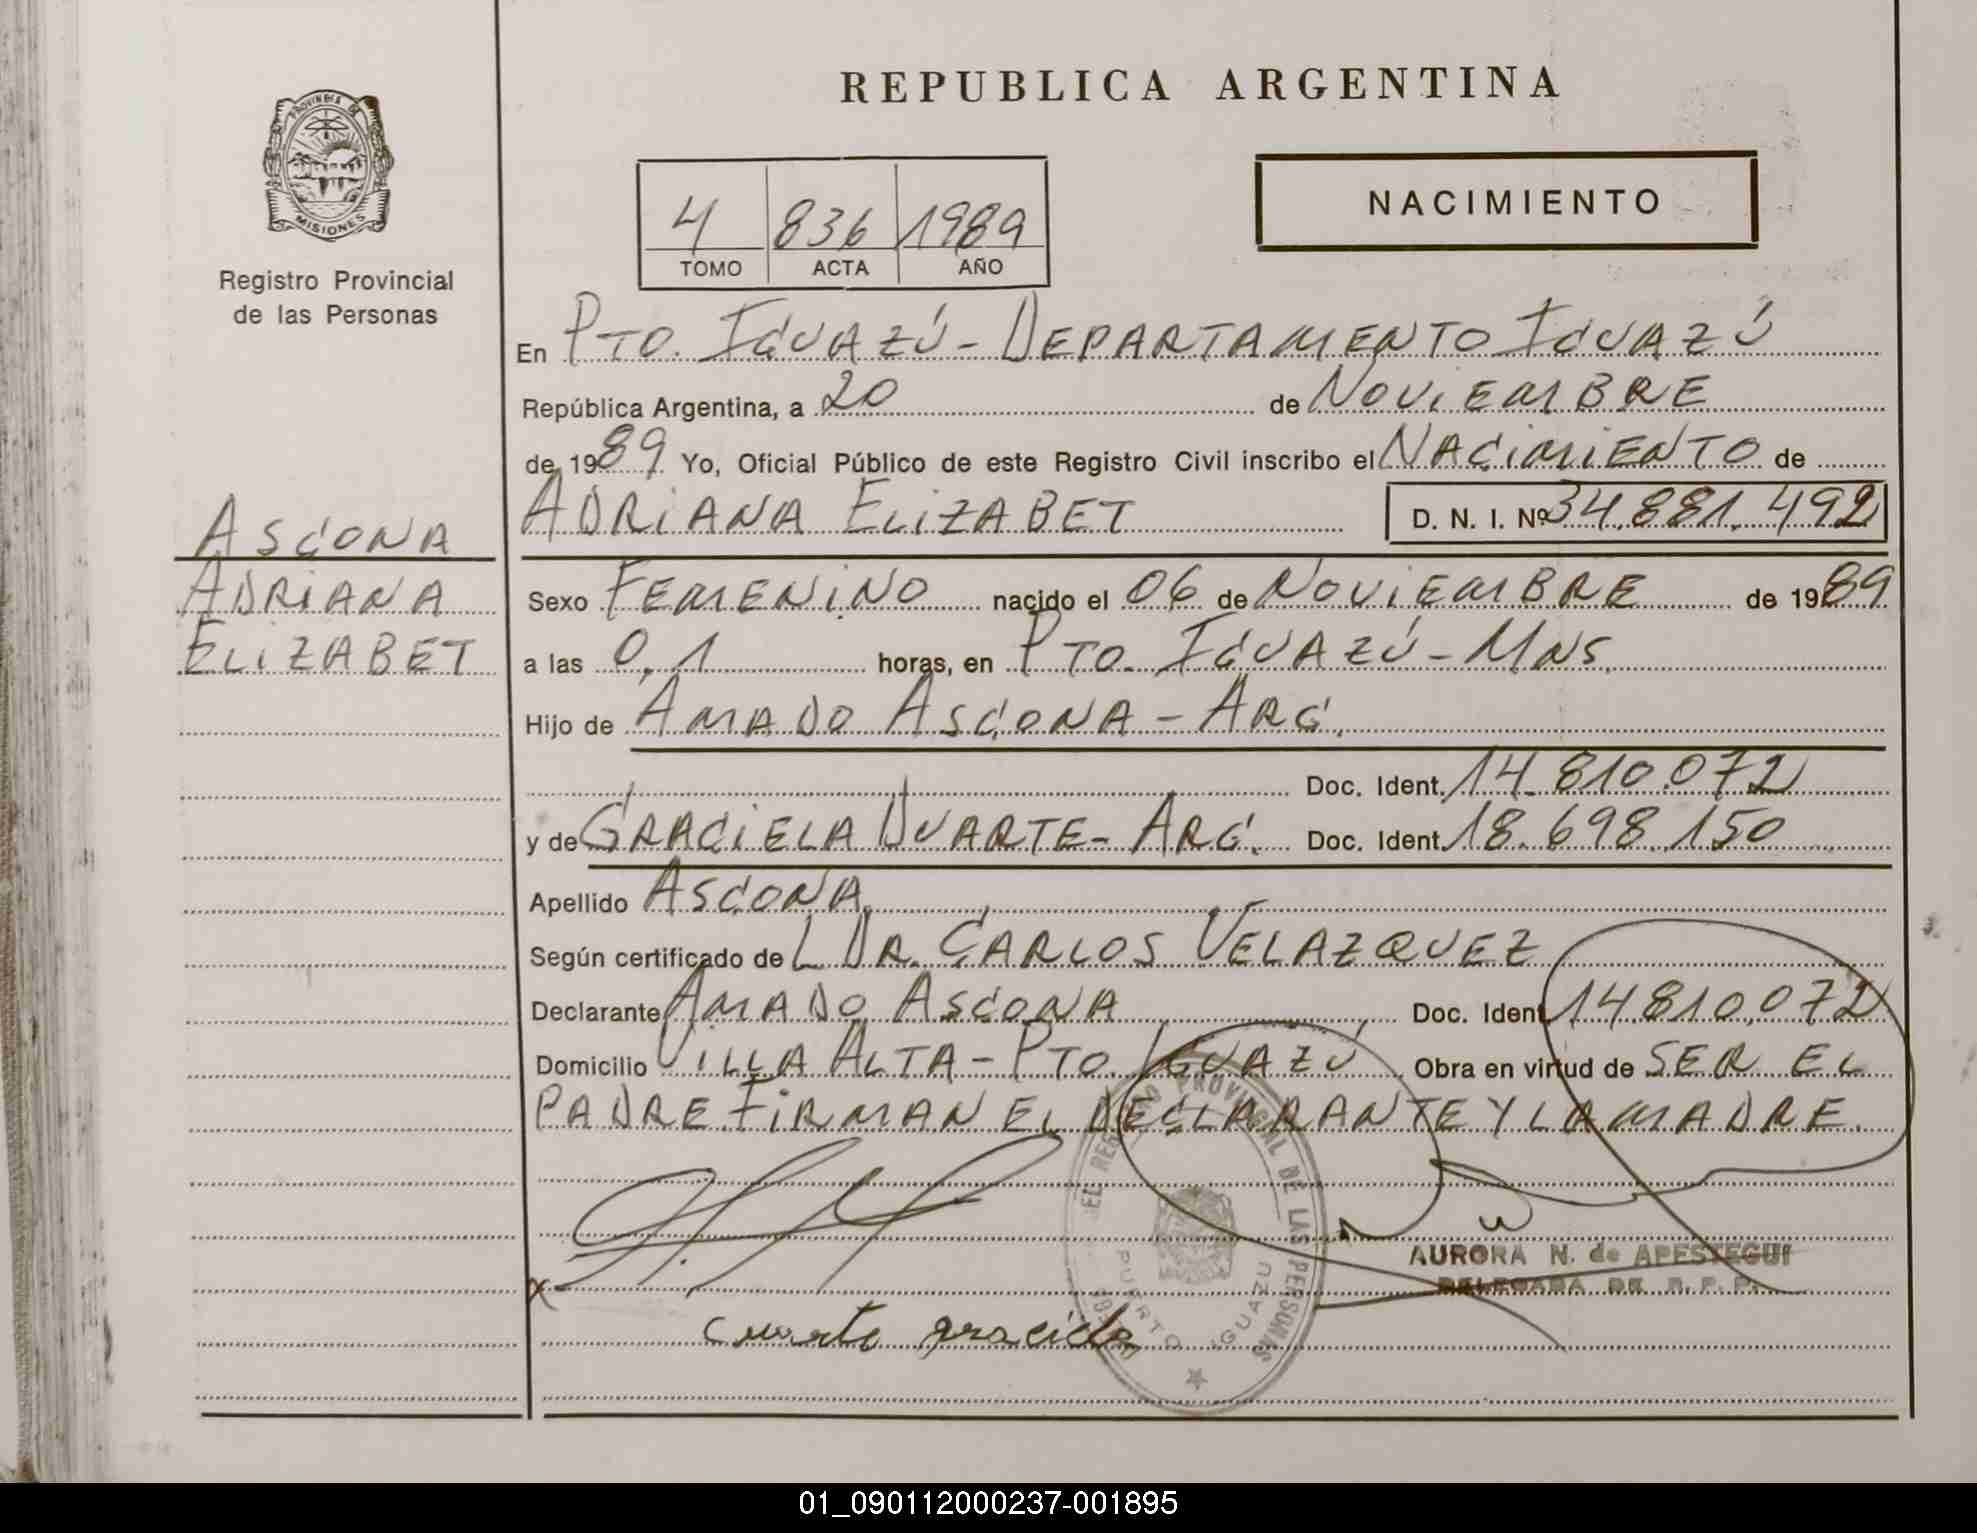 REPUBLICA ARGENTINA
PROVINCIA DE
MISIONES
Registro Provincial
de las Personas
4 836 1989
TOMO ACTA AÑO
NACIMIENTO
En PTO. IGUAZÚ - DEPARTAMENTO IGUAZÚ
República Argentina, a 20 de NOVIEMBRE
de 1989 Yo, Oficial Público de este Registro Civil inscribo el NACIMIENTO de
ADRIANA ELIZABET D. N. I. Nº 34.881.492
ASCONA
ADRIANA
ELIZABET
Sexo FEMENINO nacido el 06 de NOVIEMBRE de 1989
a las 0.1 horas, en PTO. IGUAZÚ - MNS.
Hijo de AMADO ASCONA - ARG.
Doc. Ident. 14.810.072
y de GRACIELA DUARTE - ARG. Doc. Ident. 18.698.150
Apellido ASCONA
Según certificado de L DR. CARLOS VELAZQUEZ
Declarante AMADO ASCONA Doc. Ident. 14.810.072
Domicilio VILLA ALTA - PTO. IGUAZÚ Obra en virtud de SER EL
PADRE FIRMAN EL DECLARANTE Y LA MADRE.
REGISTRO PROVINCIAL DE LAS PERSONAS
PUERTO IGUAZU
AURORA N. de APESTEGUI
DELEGADA DE R. P. P.
01_090112000237-001895